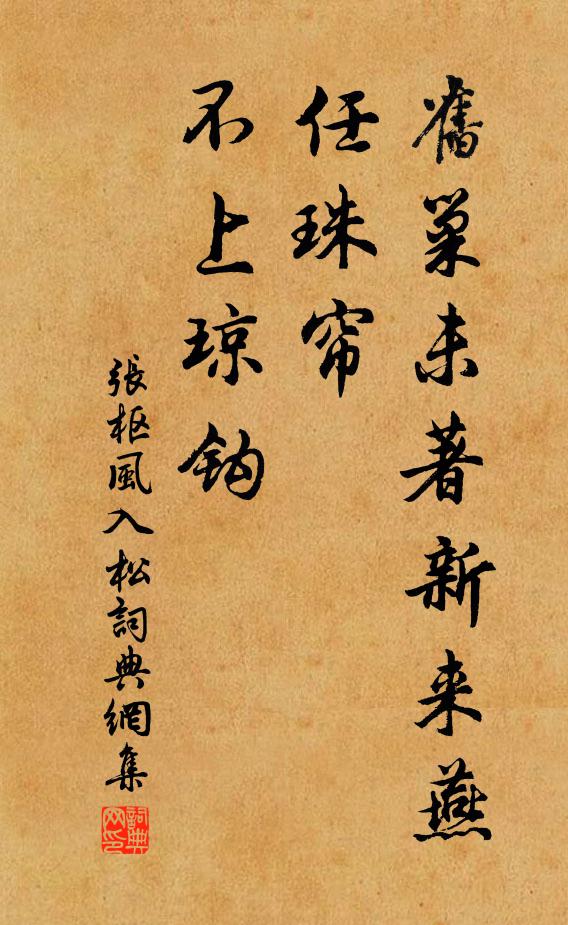 舊巢未著新来燕
任珠帘
不上琼钩
張枢風入松詞典網集
詞典网印